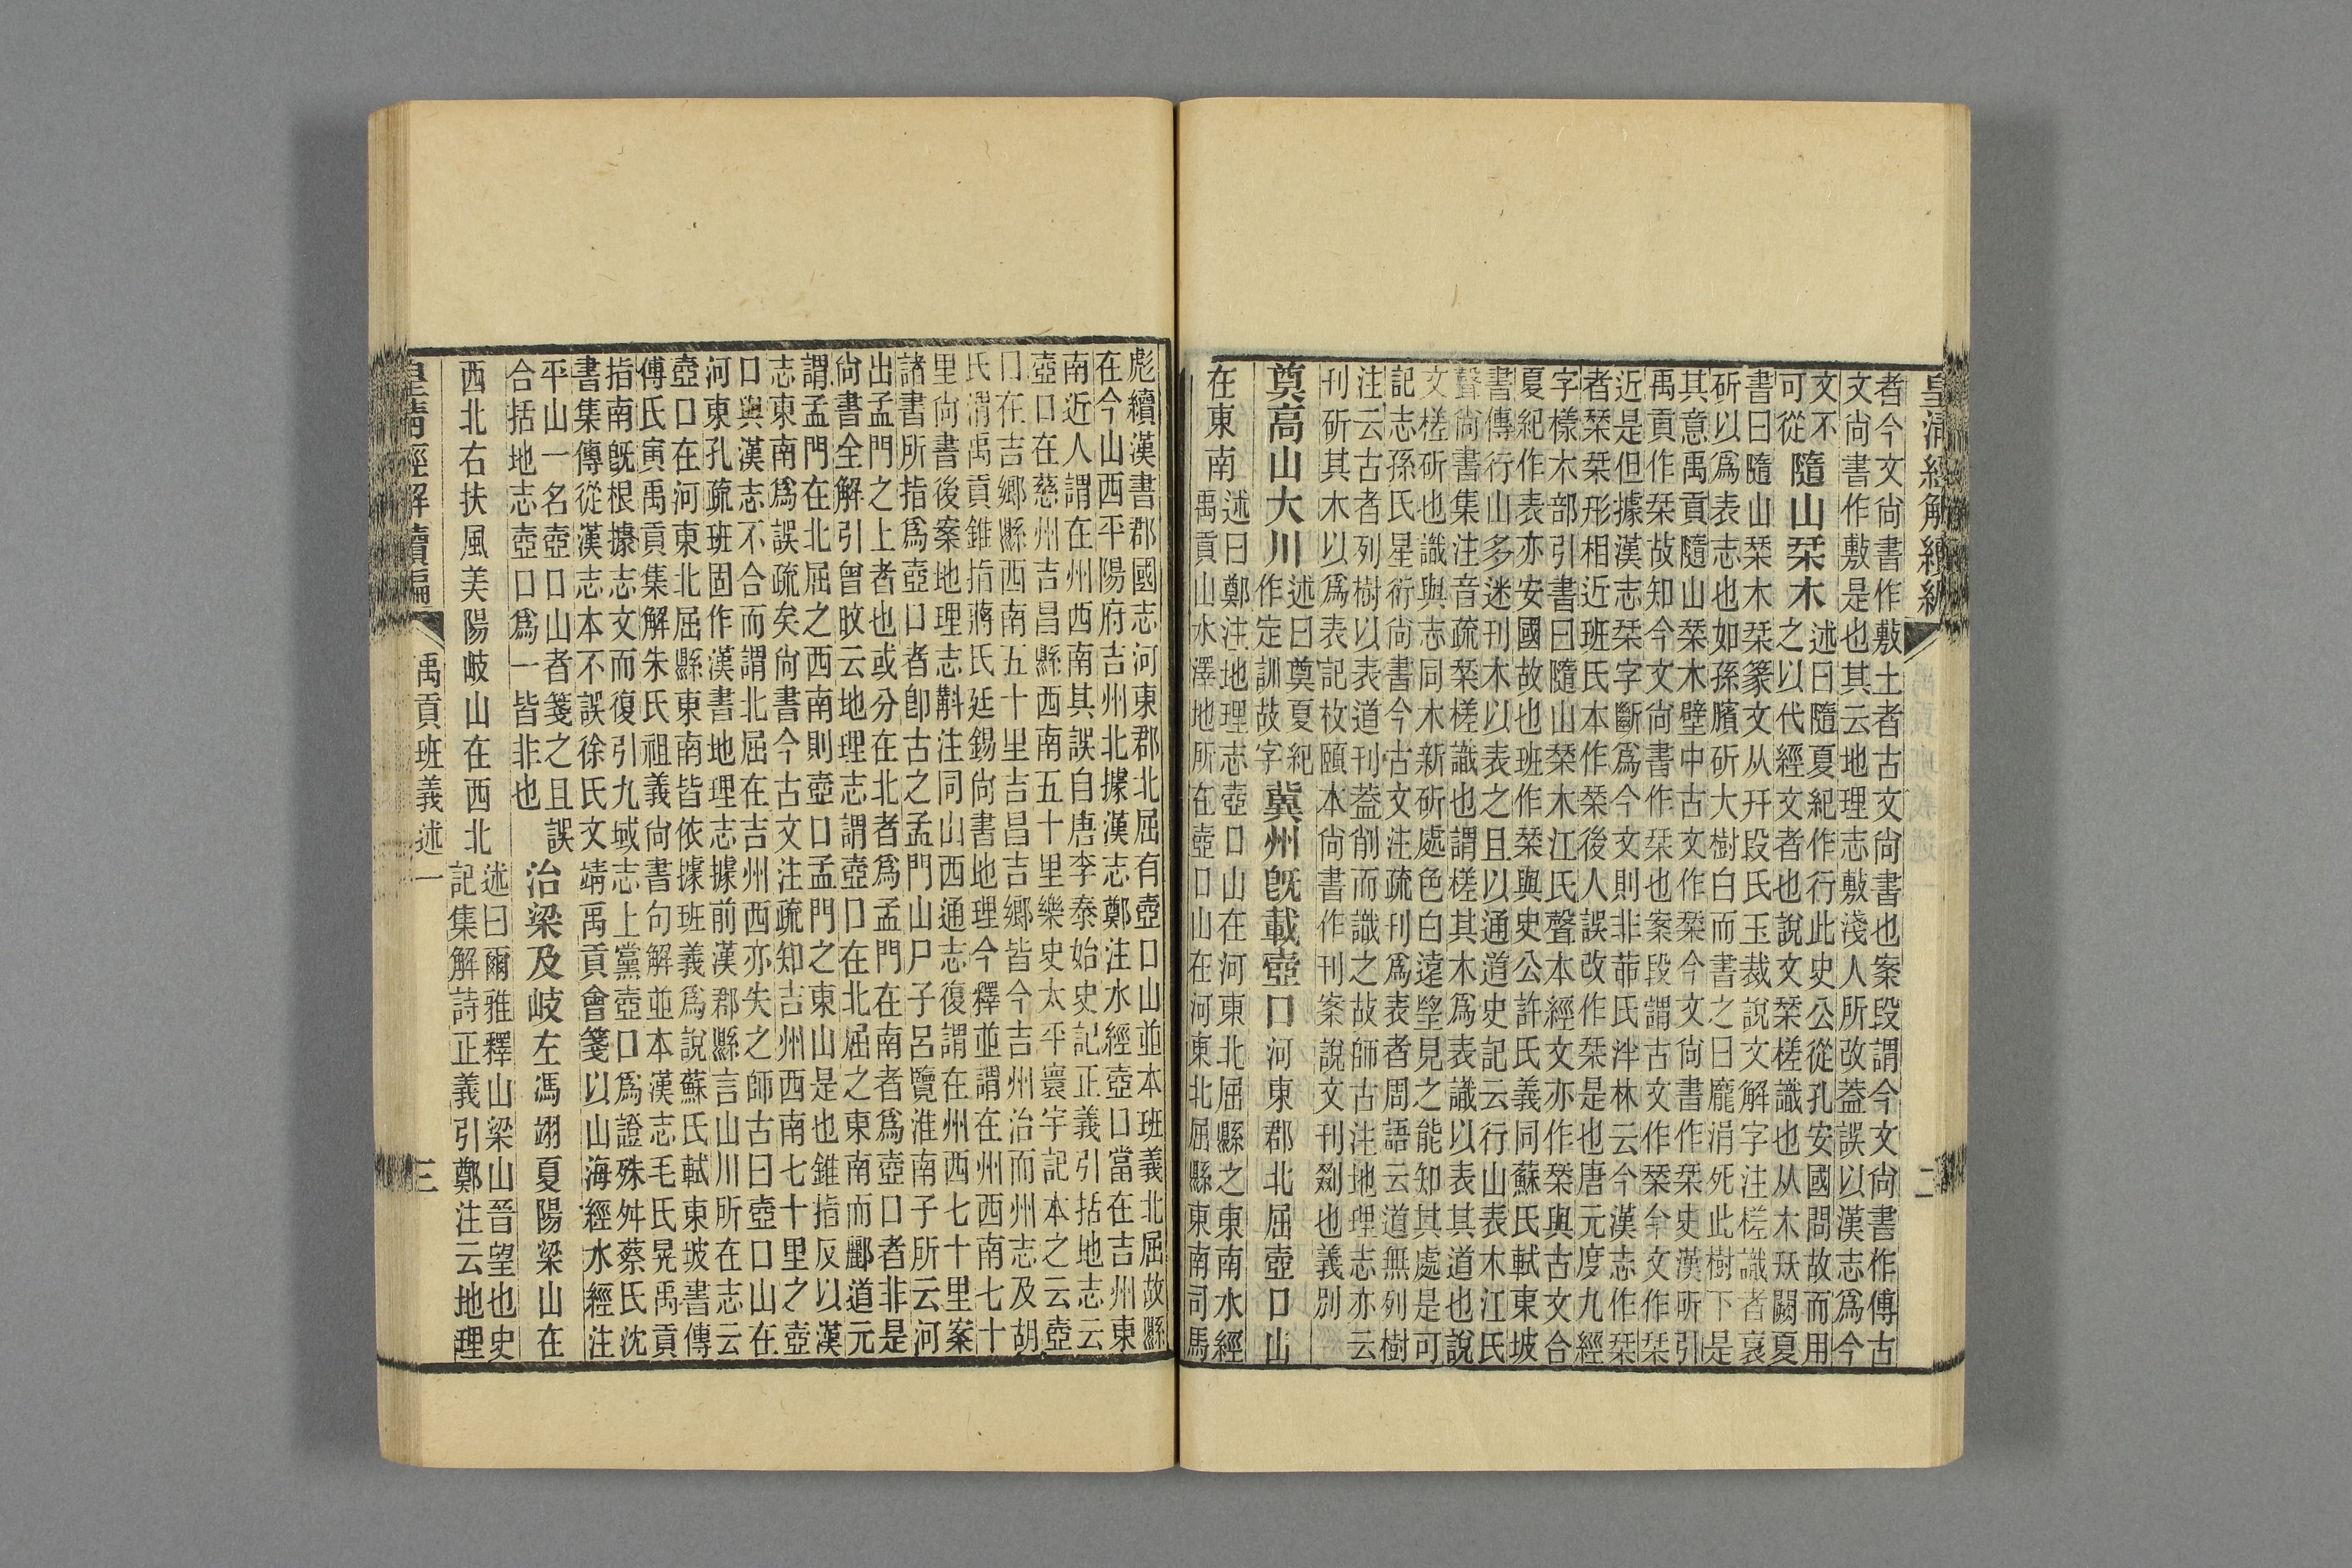 皇清經解續編
二
者今文尚書作敷土者古文尚書也案段謂今文尚書作傅古
文尚書作敷是也其云地理志敷淺人所改葢誤以漢志爲今
文不可從隨山栞木述曰隨夏紀作行此史公從孔安國問故而用
之以代經文者也說文栞槎識也从木㺿闕夏
書曰隨山栞木栞篆文从幵段氏玉裁說文解字注槎識者衺
斫以爲表志也如孫臏斫大樹白而書之曰龐涓死此樹下是
其意禹貢隨山栞木壁中古文作栞今文尚書作栞史漢所引
禹貢作栞故知今文尚書作栞也案段謂古文作栞今文作栞
近是但據漢志栞字斷爲今文則非茆氏泮林云今漢志作栞
者栞栞形相近班氏本作栞後人誤改作栞是也唐元度九經
字樣木部引書曰隨山栞木江氏聲本經文亦作栞與古文合
夏紀作表亦安國故也班作栞與史公許氏義同蘇氏軾東坡
書傳行山多迷刊木以表之且以通道史記云行山表木江氏
聲尚書集注音疏栞槎識也謂槎其木爲表識以表其道也說
文槎斫也識與志同木新斫處色白遠望見之能知其處是可
記志孫氏星衍尚書今古文注疏刊爲表者周語云道無列樹
注云古者列樹以表道刊葢削而識之故師古注地理志亦云
刊斫其木以爲表記枚頤本尚書作刊案說文刊剟也義別
奠高山大川述曰奠夏紀作定訓故字冀州旣載壺口河東郡北屈壺口山
在東南述曰鄭注地理志壺口山在河東北屈縣之東南水經
禹貢山水澤地所在壺口山在河東北屈縣東南司馬
彪續漢書郡國志河東郡北屈有壺口山並本班義北屈故縣
在今山西平陽府吉州北據漢志鄭注水經壺口當在吉州東
南近人謂在州西南其誤自唐李泰始史記正義引括地志云
壺口在慈州吉昌縣西南五十里樂史太平寰宇記本之云壺
口在吉鄉縣西南五十里吉昌吉鄉皆今吉州治而州志及胡
氏渭禹貢錐指蔣氏廷錫尚書地理今釋並謂在州西南七十
里尚書後案地理志斠注同山西通志復謂在州西七十里案
諸書所指爲壺口者卽古之孟門山尸子呂覽淮南子所云河
出孟門之上者也或分在北者爲孟門在南者爲壺口者非是
尚書全解引曾旼云地理志謂壺口在北屈之東南而酈道元
謂孟門在北屈之西南則壺口孟門之東山是也錐指反以漢
志東南爲誤疏矣尚書今古文注疏知吉州西南七十里之壺
口與漢志不合而謂北屈在吉州西亦失之師古曰壺口山在
河東孔疏班固作漢書地理志據前漢郡縣言山川所在志云
壺口在河東北屈縣東南皆依據班義爲說蘇氏軾東坡書傳
傅氏寅禹貢集解朱氏祖義尚書句解並本漢志毛氏晃禹貢
指南旣根據志文而復引九域志上黨壺口爲證殊舛蔡氏沈
書集傳從漢志本不誤徐氏文靖禹貢會箋以山海經水經注
平山一名壺口山者箋之且誤
合括地志壺口爲一皆非也治梁及岐左馮翊夏陽梁山在
西北右扶風美陽岐山在西北述曰爾雅釋山梁山晉望也史
記集解詩正義引鄭注云地理
皇清經解續編
禹貢班義述一
三